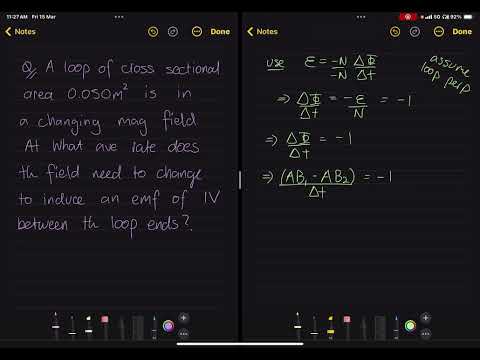 11:27 AM Fri 15 Mar
5G 92%
Notes
Done
Notes
Done
Q// A loop of cross sectional
area 0.050m² is in
a changing mag field
At what ave rate does
th field need to change
to induce an emf of 1V
between th loop ends?
use ε = -N/-N ΔΦ/Δt
assume
loop perp
⇒ ΔΦ/Δt = -ε/N = -1
⇒ ΔΦ/Δt = -1
⇒ (AB₁ - AB₂)/Δt = -1